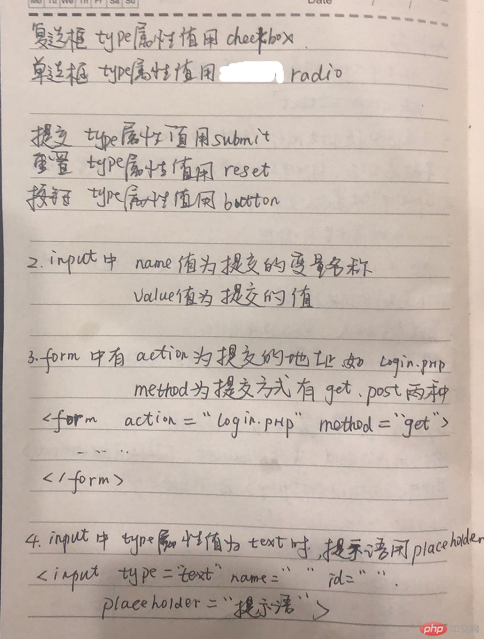 Mo Tu We Th Fr Sa Su
Date
复选框 type属性值用 checkbox.
单选框 type属性值用 radio
提交 type属性值用submit
重置 type属性值用 reset
按钮 type属性值用 button
2. input中 name值为提交的变量名称
value值为提交的值
3. form 中有 action为提交的地址 如 Login.PHP
method为提交方式有 get、post 两种
<form action="Login.PHP" method="get">
</form>
4. input 中 type属性值为 text 时,提示语用placeholder
<input type="text" name=" " id=" ".
placeholder="提示语">
php